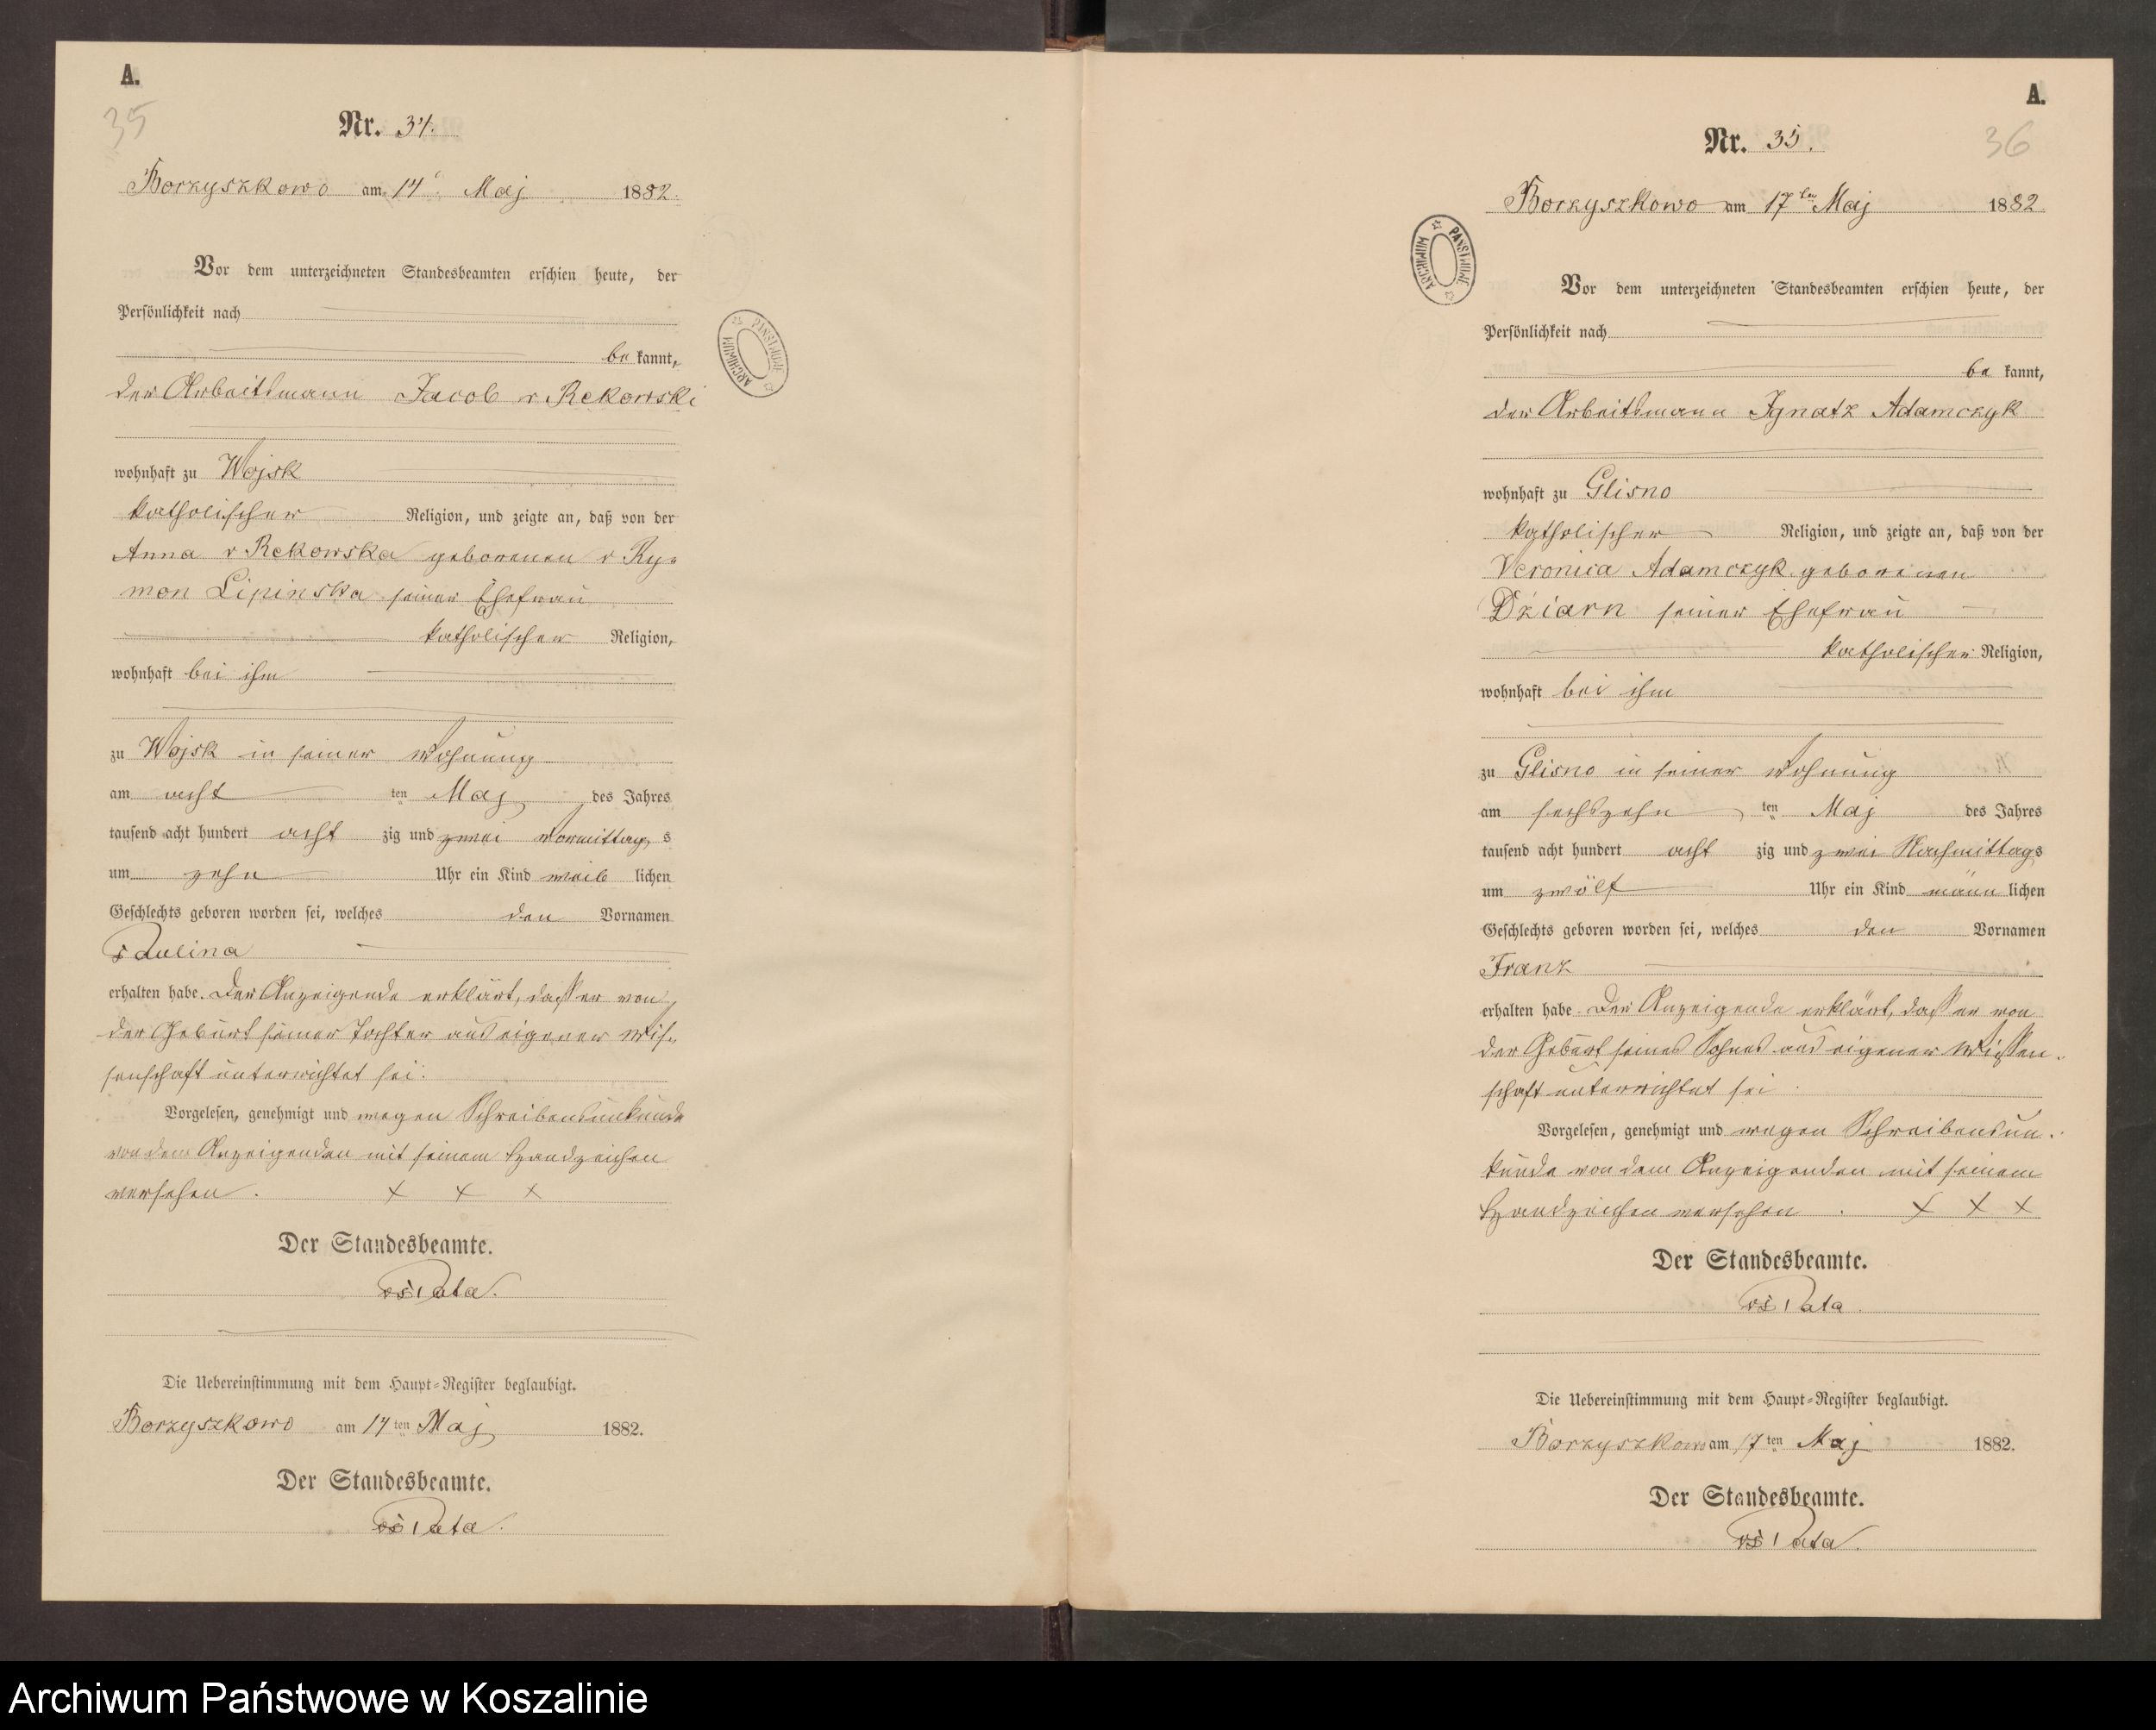 A.
35
Nr. 34.
Borzyszkowo am 14 Maj 1882.
Vor dem unterzeichneten Standesbeamten erschien heute, der
Persönlichkeit nach
be kannt,
der Arbeitsmann Jacob v Rekowski
wohnhaft zu Wojsk
katholischer Religion, und zeigte an, daß von der
Anna v Rekowska geborenen v Ry-
mon Lipinska seiner Ehefrau
katholischer Religion,
wohnhaft bei ihm
zu Wojsk in seiner Wohnung
am acht ten Maj des Jahres
tausend acht hundert acht zig und zwei Vormittag s
um zehn Uhr ein Kind weib lichen
Geschlechts geboren worden sei, welches den Vornamen
Paulina
erhalten habe. Der Anzeigende erklärt, dass er von
der Geburt seiner Tochter aus eigener Wis-
senschaft unterrichtet sei.
Vorgelesen, genehmigt und wegen Schreibensunkunde
von dem Anzeigenden mit seinem Handzeichen
versehen. x x x
Der Standesbeamte.
Pata.
Die Uebereinstimmung mit dem Haupt-Register beglaubigt.
Borzyszkowo am 14 ten Maj 1882.
Der Standesbeamte.
Pata.
A.
36
Nr. 35.
Borzyszkowo am 17 ten Maj 1882
ARCHIWUM PAŃSTWOWE
Vor dem unterzeichneten Standesbeamten erschien heute, der
Persönlichkeit nach
be kannt,
der Arbeitsmann Ignatz Adamczyk
wohnhaft zu Glisno
katholischer Religion, und zeigte an, daß von der
Veronica Adamczyk geborenen
Dziarn seiner Ehefrau
katholischer Religion,
wohnhaft bei ihm
zu Glisno in seiner Wohnung
am sechszehn ten Maj des Jahres
tausend acht hundert acht zig und zwei Nachmittags
um zwölf Uhr ein Kind männ lichen
Geschlechts geboren worden sei, welches den Vornamen
Franz
erhalten habe. Der Anzeigende erklärt, dass er von
der Geburt seines Sohnes aus eigener Wissen-
schaft unterrichtet sei.
Vorgelesen, genehmigt und wegen Schreibensun-
kunde von dem Anzeigenden mit seinem
Handzeichen versehen. x x x
Der Standesbeamte.
Pata.
Die Uebereinstimmung mit dem Haupt-Register beglaubigt.
Borzyszkowo am 17 ten Maj 1882.
Der Standesbeamte.
Pata.
Archiwum Państwowe w Koszalinie